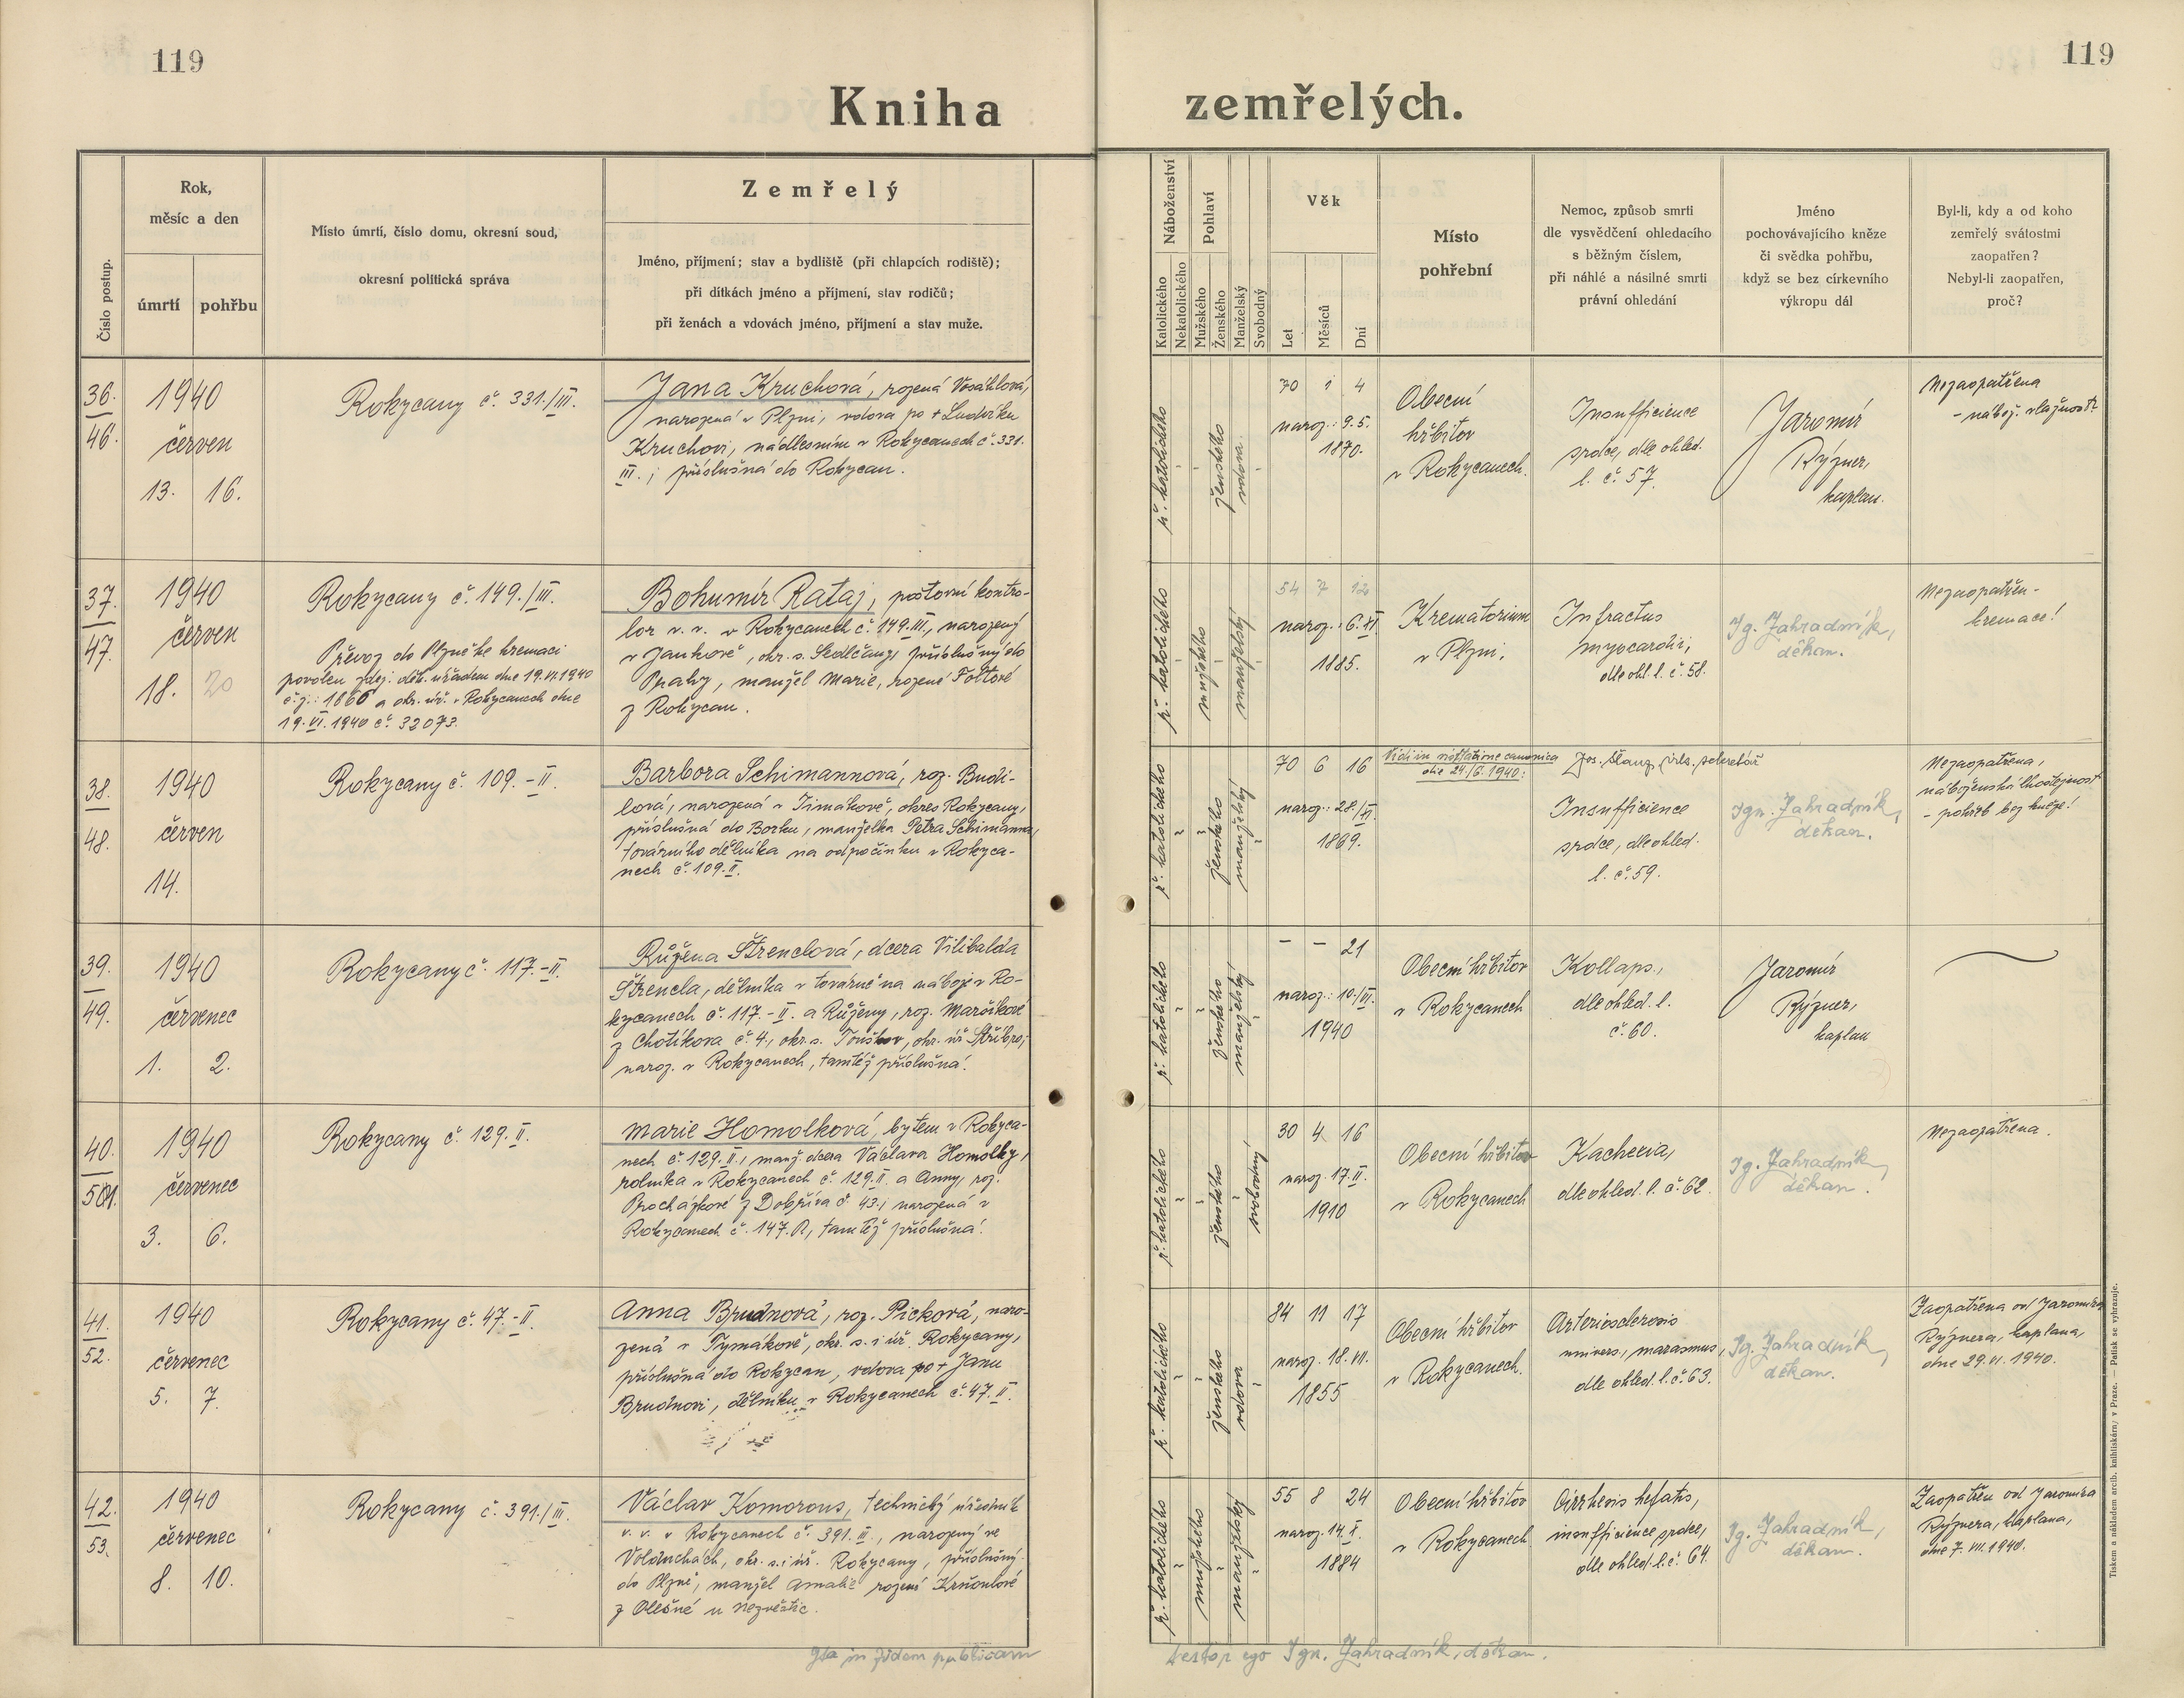 119
119
Kniha zemřelých.
Číslo postup.
Rok,
měsíc a den
úmrtí
pohřbu
Místo úmrtí, číslo domu, okresní soud,
okresní politická správa
Zemřelý
Jméno, příjmení; stav a bydliště (při chlapcích rodiště);
při dítkách jméno a příjmení, stav rodičů;
při ženách a vdovách jméno, příjmení a stav muže.
Náboženství
Katolického
Nekatolického
Pohlaví
Mužského
Ženského
Manželský
Svobodný
Věk
Let
Měsíců
Dní
Místo
pohřební
Nemoc, způsob smrti
dle vysvědčení ohledacího
s běžným číslem,
při náhlé a násilné smrti
právní ohledání
Jméno
pochovávajícího kněze
či svědka pohřbu,
když se bez církevního
výkropu dál
Byl-li, kdy a od koho
zemřelý svátostmi
zaopatřen?
Nebyl-li zaopatřen,
proč?
36.
46.
1940
červen
13. 16.
Rokycany č. 331./III.
Jana Kruchová, rozená Vosáhlová,
narozená v Plzni, vdova po + Ludvíku
Kruchovi, nadlesním v Rokycanech č. 331.
III.; příslušná do Rokycan.
ř. katolického
ženského
vdova
70 1 4
naroz.: 9.5.
1870.
Obecní
hřbitov
v Rokycanech.
Insufficience
srdce, dle ohled.
l. č. 57.
Jaromír
Rýzner,
kaplan.
Nezaopatřena
- nábož. vlažnost
37.
47.
1940
červen
18. 20
Rokycany č. 149./III.
Převoz do Plzně ke kremaci
povolen zdej. děk. úřadem dne 19.VI.1940
č.j.: 1666 a okr. úř. v Rokycanech dne
19.VI.1940 č. 32073.
Bohumír Rataj, poštovní kontro-
lor v. v. v Rokycanech č. 149.III., narozený
v Jankově, okr. s. Sedlčany, příslušný do
Prahy, manžel Marie, rozené Foltové
z Rokycan.
ř. katolického
mužského
manželský
54 7 12
naroz.: 6. XI
1885.
Krematorium
v Plzni.
Infractus
myocardii,
dle ohl. l. č. 58.
Ig. Zahradník,
děkan.
Nezaopatřen -
kremace!
38.
48.
1940
červen
14.
Rokycany č. 109. - II.
Barbora Schimannová, roz. Budi-
lová, narozená v Timákově, okres Rokycany,
příslušná do Borku, manželka Petra Schimanna,
továrního dělníka na odpočinku v Rokyca-
nech č. 109. II.
ř. katolického
ženského
manželský
70 6 16
naroz.: 28./XI.
1869.
Vidi in visitatione canonica
die 24./6. 1940:
Insufficience
srdce, dle ohled.
l. č. 59.
Ign. Zahradník,
děkan.
Nezaopatřena,
náboženská lhostejnost
- pohřeb bez kněze!
39.
49.
1940
červenec
1. 2.
Rokycany č. 117. - II.
Růžena Štrenclová, dcera Vilibalda
Štrencla, dělníka v továrně na náboje v Ro-
kycanech č. 117. - II. a Růženy, roz. Maršíkové
z Chotíkova č. 4., okr. s. Touškov, okr. úř. Stříbro,
naroz. v Rokycanech, tamtéž příslušná.
ř. katolického
ženského
manželský
- - 21
naroz.: 10./VI.
1940
Obecní hřbitov
v Rokycanech
Kollaps.,
dle ohled. l.
č. 60.
Jaromír
Rýzner,
kaplan
40.
1940
červenec
3. 6.
Rokycany č. 129. II.
Marie Homolková, bytem v Rokyca-
nech č. 129. II., manž. dcera Václava Homolky,
rolníka v Rokycanech č. 129. II. a Anny, roz.
Procházkové z Dobříva č. 43., narozená v
Rokycanech č. 147. R, tamtéž příslušná.
ř. katolického
ženského
svobodný
30 4 16
naroz. 17. II.
1910
Obecní hřbitov
v Rokycanech
Kachexia,
dle ohled. l. č. 62.
Ig. Zahradník,
děkan.
Nezaopatřena.
41.
52.
1940
červenec
5. 7.
Rokycany č. 47. - II.
Anna Brudnová, roz. Picková, naro-
zená v Tymákově, okr. s. i úř. Rokycany,
příslušná do Rokycan, vdova po + Janu
Brudnovi, dělníku v Rokycanech č. 47. II.
ř. katolického
ženského
vdova
84 11 17
naroz. 18. VII.
1855
Obecní hřbitov
v Rokycanech.
Arteriosclerosis
univers., marasmus,
dle ohled. l. č. 63.
Ig. Zahradník,
děkan.
Zaopatřena od Jaromíra
Rýznera, kaplana,
dne 29. VI. 1940.
42.
53.
1940
červenec
8. 10.
Rokycany č. 391./III.
Václav Komorous, technický úředník
v. v. v Rokycanech č. 391. III., narozený ve
Volduchách, okr. s. i úř. Rokycany, příslušný
do Plzně, manžel Amalie rozené Krňoulové
z Olešné u Nezvěstic.
ř. katolického
mužského
manželský
55 8 24
naroz. 14. X.
1884
Obecní hřbitov
v Rokycanech
Cirrhosis hepatis,
insufficience srdce,
dle ohled. l. č. 64.
Ig. Zahradník,
děkan.
Zaopatřen od Jaromíra
Rýznera, kaplana,
dne 7. VII. 1940.
Ita in fidem publicam
testor ego Ign. Zahradník, děkan.
Tiskem a nákladem arcib. knihtiskárny v Praze. — Patisk se vyhrazuje.